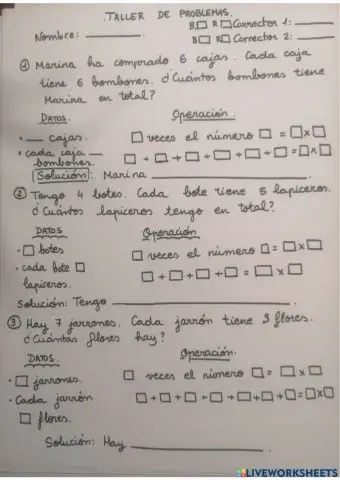 TALLER DE PROBLEMAS.
B□ R□ Corrector 1: ____
Nombre: ________.
B□ R□ Corrector 2: ____
① Marina ha comprado 6 cajas. Cada caja
tiene 6 bombones. ¿Cuántos bombones tiene
Marina en total?
DATOS. Operación.
• ___ cajas. □ veces el número □ = □×□
• cada caja ___ bombones. □+□+□+□+□+□=□×□
Solución: Marina ________.
② Tengo 4 botes. Cada bote tiene 5 lapiceros.
¿Cuántos lapiceros tengo en total?
DATOS Operación
• □ botes □ veces el número □=□×□
• cada bote □ lapiceros. □+□+□+□=□×□
Solución: Tengo ________.
③ Hay 7 jarrones. Cada jarrón tiene 3 flores.
¿Cuántas flores hay?
DATOS. Operación.
• □ jarrones. □ veces el número □=□×□
• Cada jarrón □+□+□+□+□+□+□=□×□
□ flores.
Solución: Hay ________.
LIVEWORKSHEETS